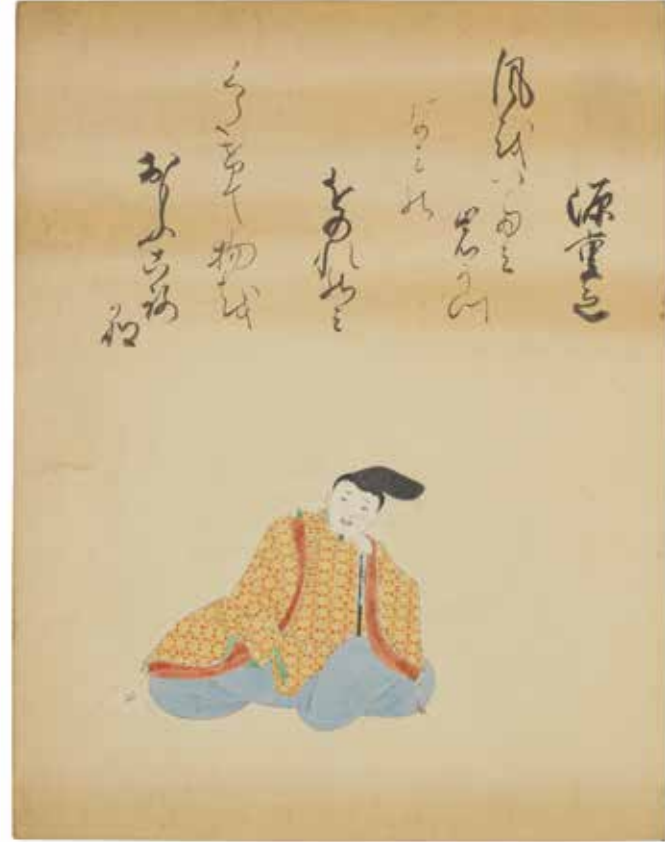 源重之
風をいたみ
岩うつ
なみの
をのれのみ
くたけて物を
おもふころ
哉